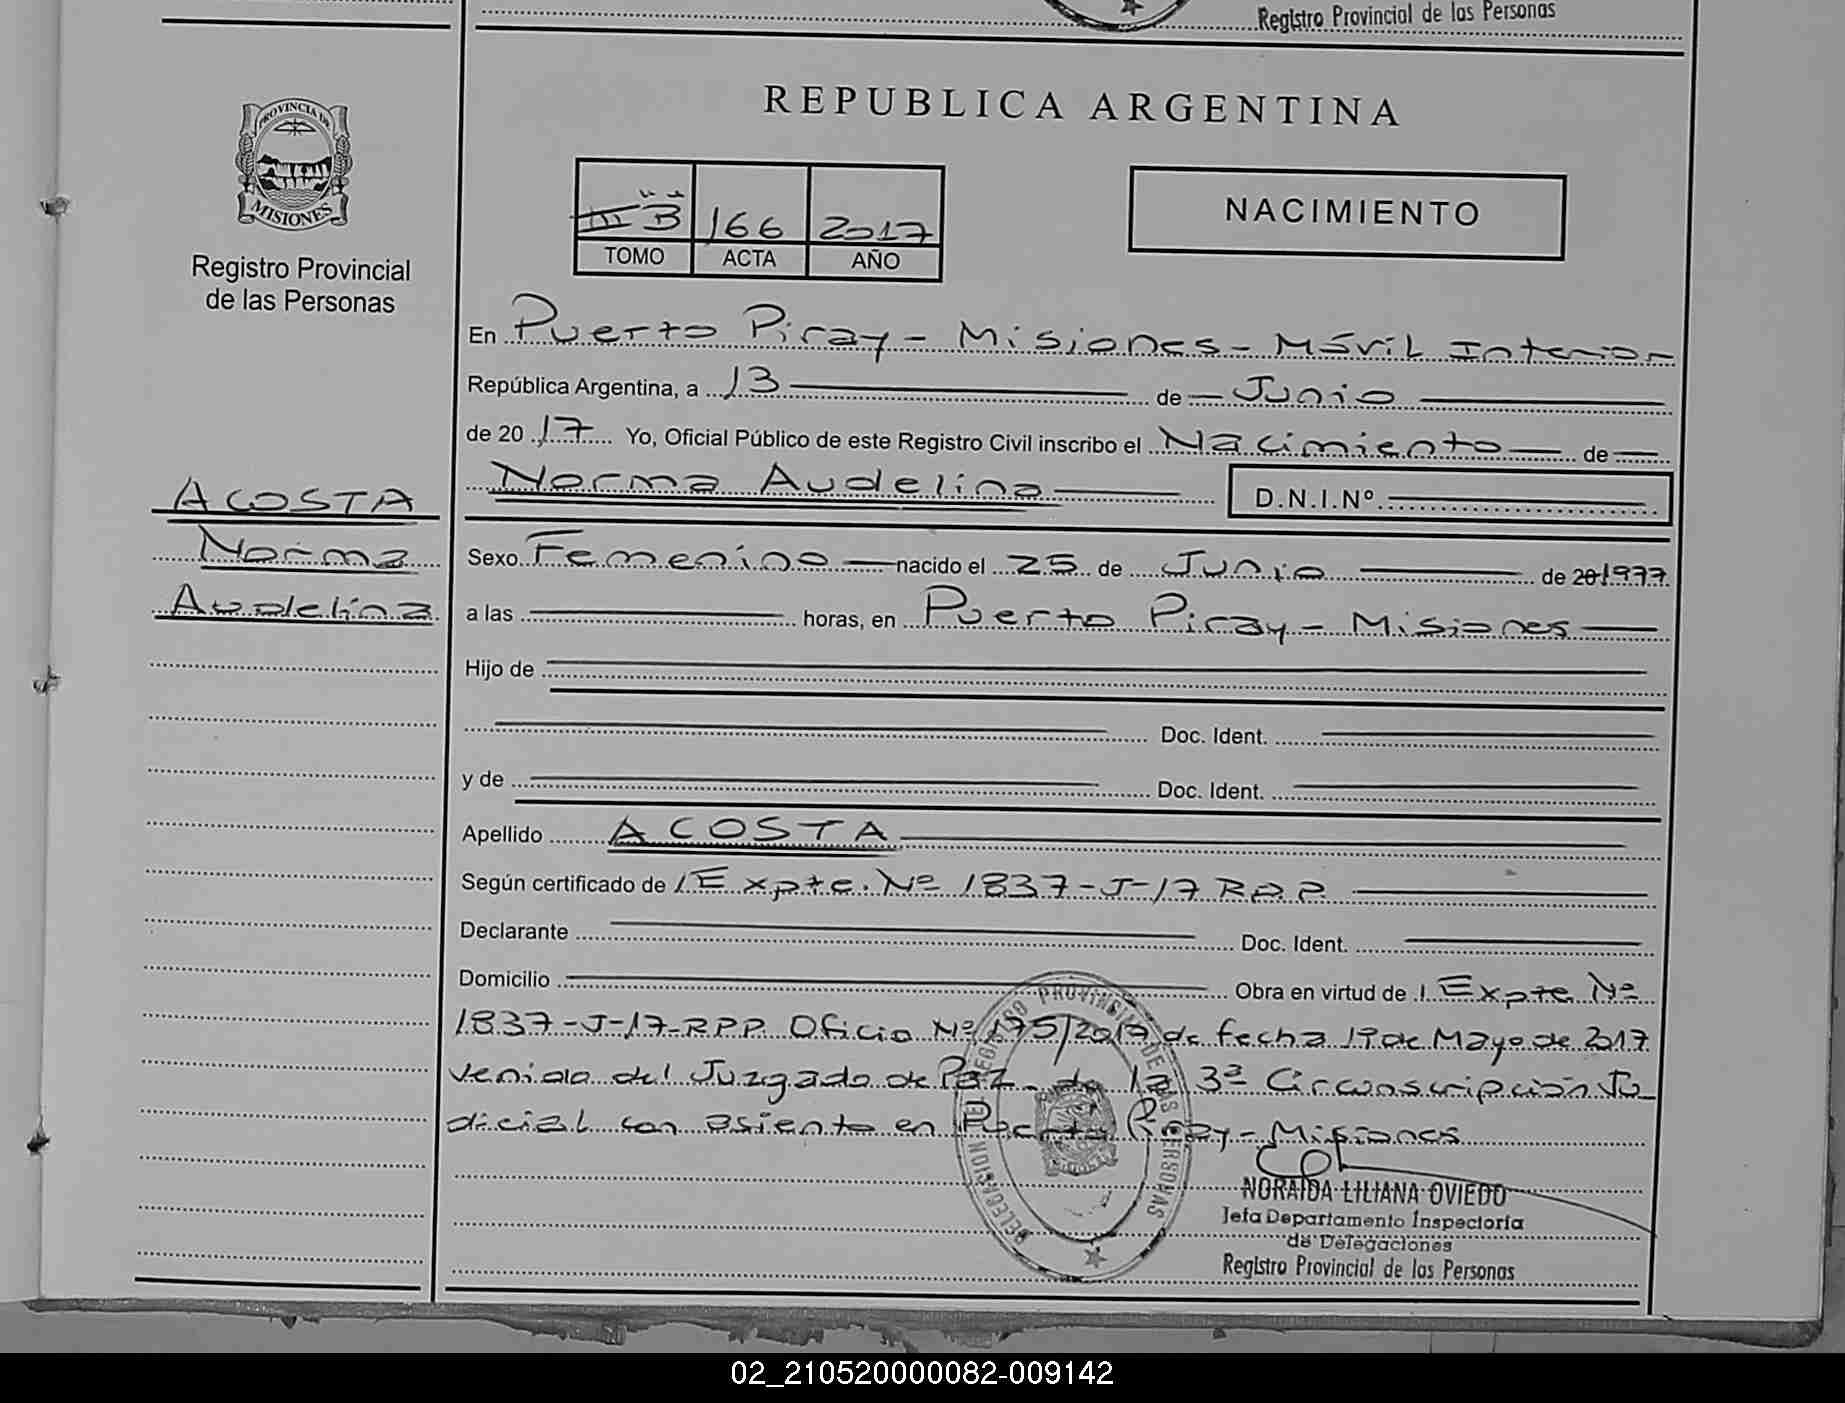 Registro Provincial de las Personas
REPUBLICA ARGENTINA
PROVINCIA DE
MISIONES
Registro Provincial
de las Personas
III "B" 166 2017
TOMO ACTA AÑO
NACIMIENTO
En Puerto Piray - Misiones - Móvil Interior
República Argentina, a 13 de Junio
de 2017 Yo, Oficial Público de este Registro Civil inscribo el Nacimiento de
Norma Audelina D.N.I.Nº
ACOSTA
Norma
Audelina
Sexo Femenino nacido el 25 de Junio de 20 1977
a las horas, en Puerto Piray - Misiones
Hijo de
Doc. Ident.
y de Doc. Ident.
Apellido ACOSTA
Según certificado de 1 Expte. Nº 1837-J-17 R.P.P.
Declarante Doc. Ident.
Domicilio Obra en virtud de 1 Expte Nº
1837-J-17-R.P.P. Oficio Nº 175/2017 de fecha 19 de Mayo de 2017
venido del Juzgado de Paz de la 3ª Circunscripción Ju
dicial con asiento en Puerto Piray - Misiones
NORAIDA LILIANA OVIEDO
Jefa Departamento Inspectoría
de Delegaciones
Registro Provincial de las Personas
02_210520000082-009142